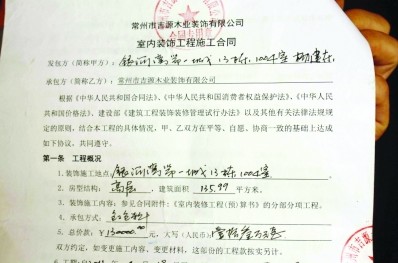 常州市吉源木业装饰有限公司
室内装饰工程施工合同
发包方(简称甲方): 银河湾第一城 13栋, 1004室
承包方(简称乙方): 常州市吉源木业装饰有限公司
根据《中华人民共和国合同法》、《中华人民共和国消费者权益保护法》、《中华人
民共和国价格法》、建设部《建筑工程装饰装修管理试行办法》以及其他有关法律法规规
定的原则,结合本工程的具体情况,甲、乙双方在平等、自愿、协商一致的基础上达成
如下协议,共同遵守。
第一条 工程概况
1. 装饰施工地点: 银河湾第一城 13栋, 1004室
2. 房型结构: 高层, 建筑面积 135.99 平方米。
3. 装饰施工内容: 参见合同附件:《室内装修工程(预算书)的分部分项工程。
4. 承包方式:
5. 总价款: ¥130000.00 元, 大写(人民币): 壹拾叁万
双方约定,如变更施工内容,变更材料,这部份的工程款按实另计。